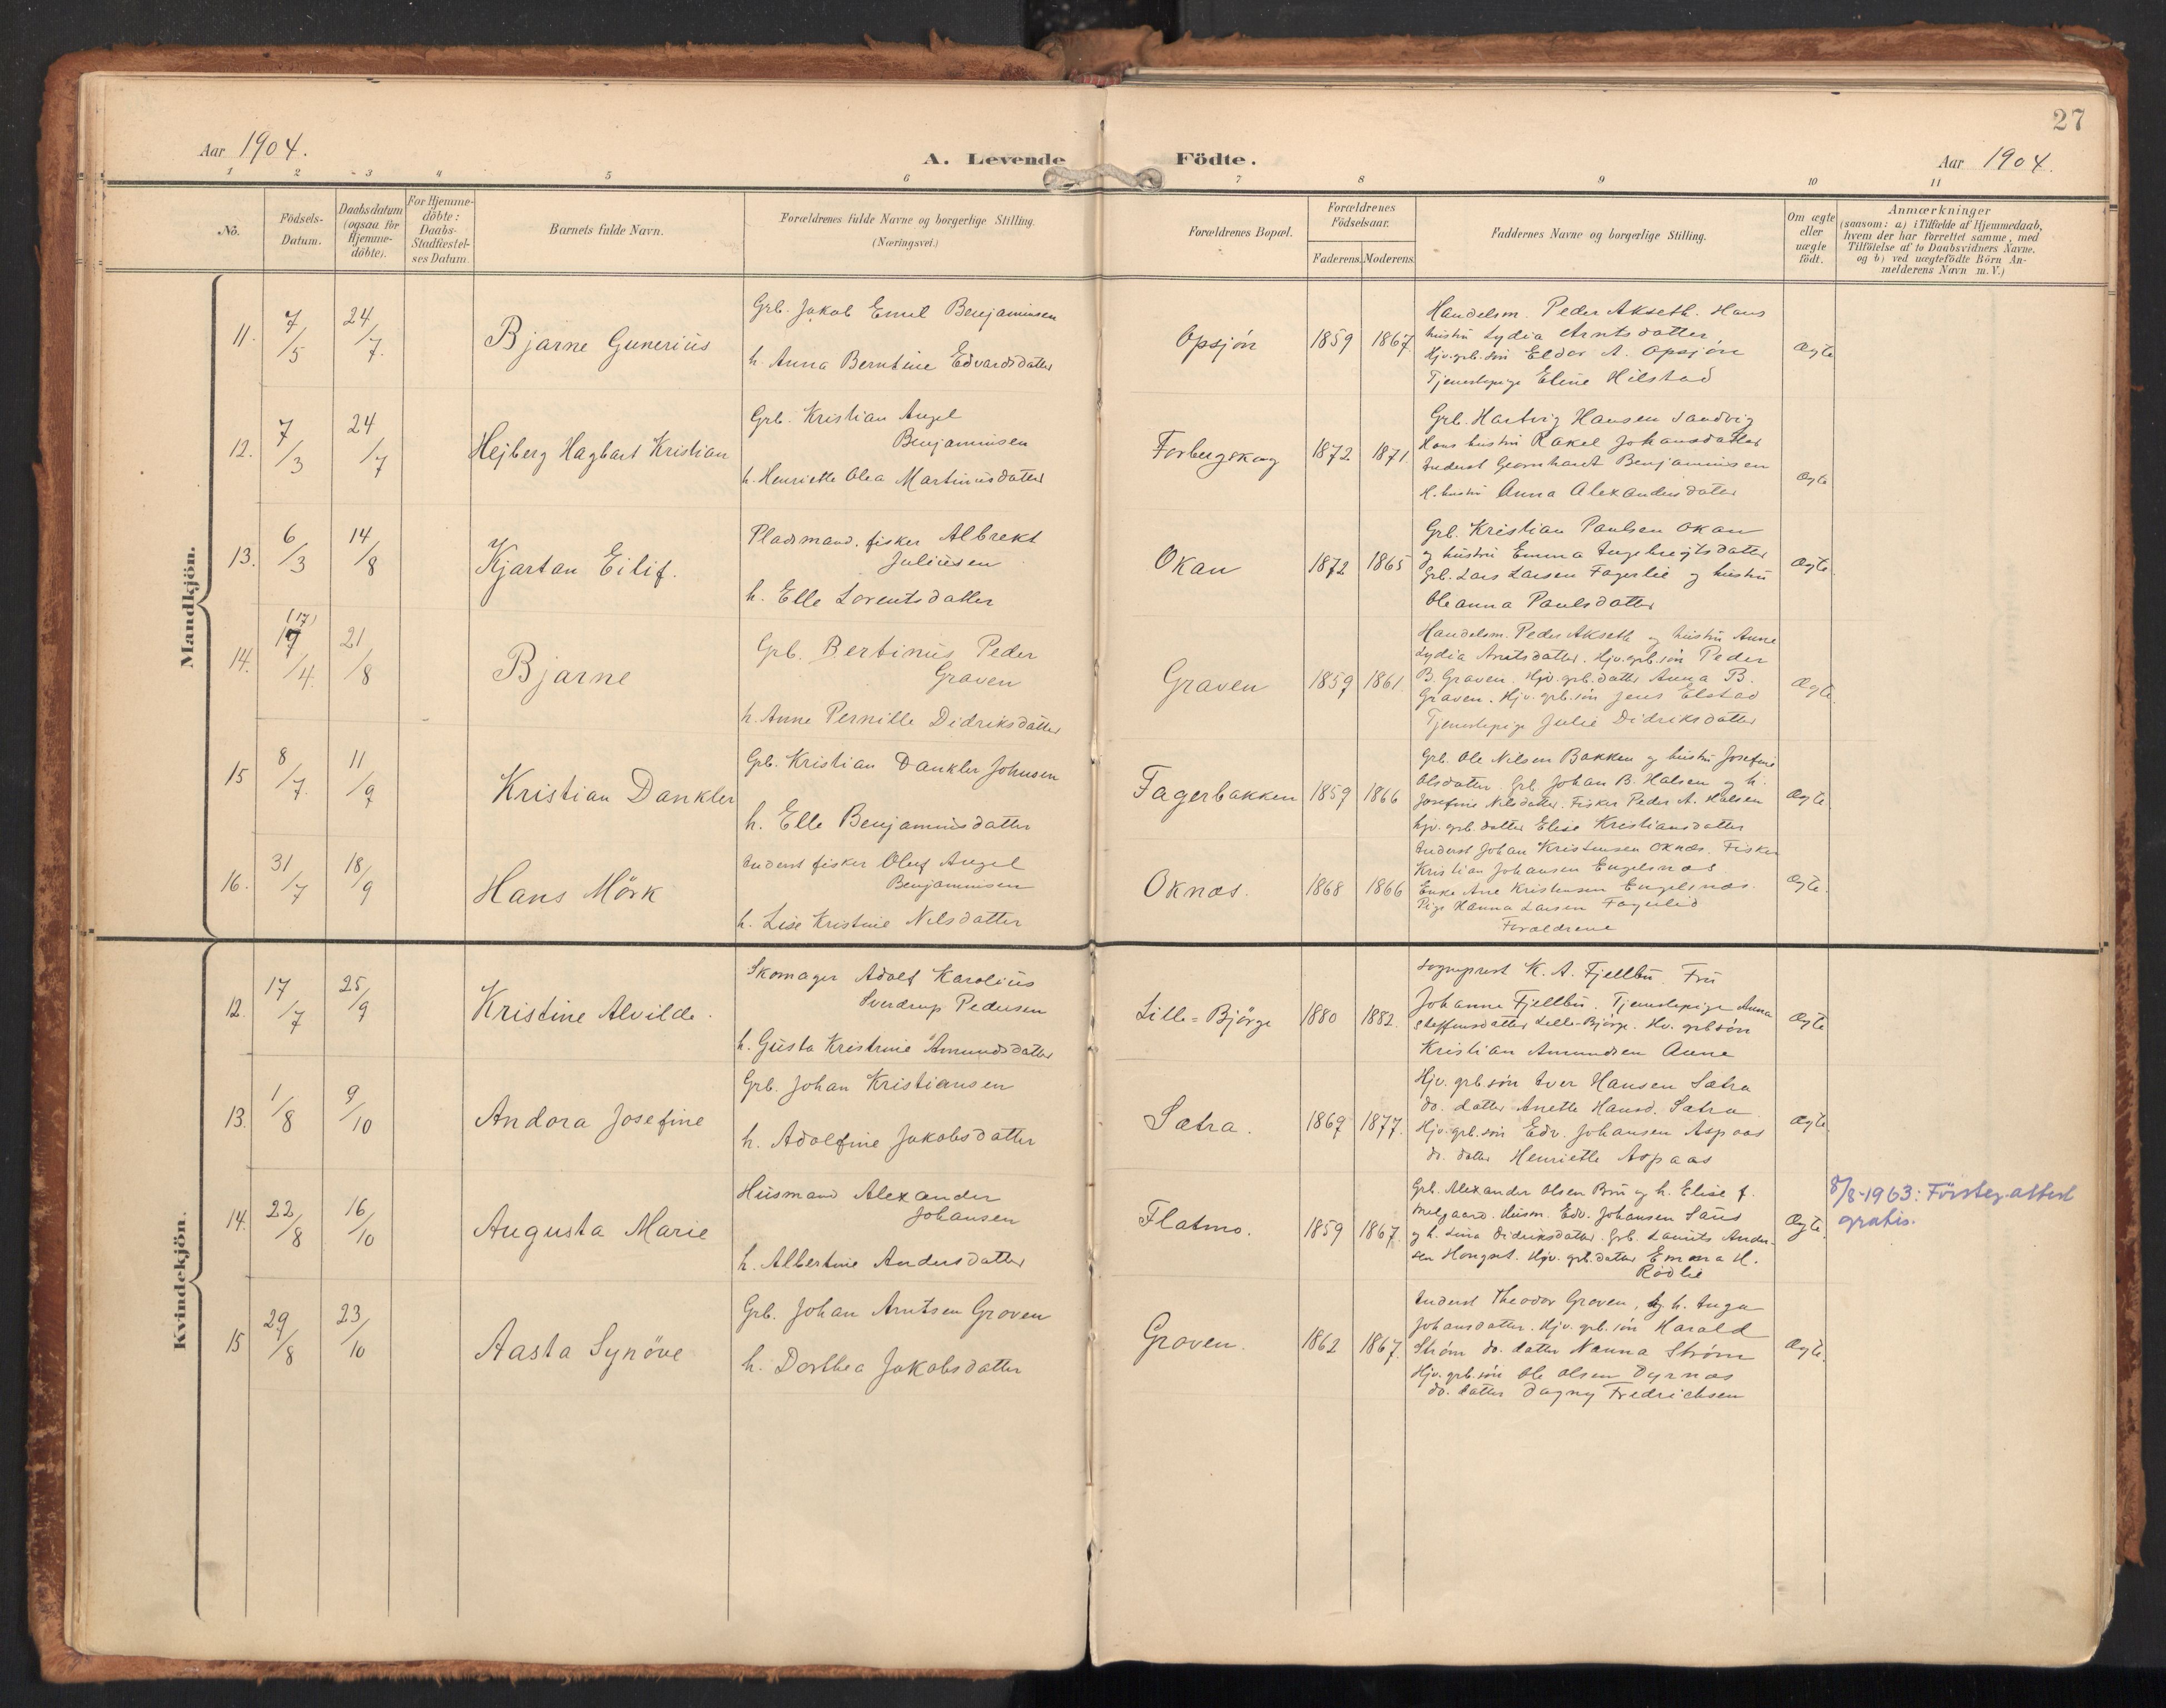 27
Aar 1904.
A. Levende Födte.
Aar 1904.
1 2 3 4 5 6 7 8 9 10 11
No.
Födsels-Datum.
Daabsdatum (ogsaa for Hjemmedöbte).
For Hjemmedöbte: Daabs-Stadfæstelses Datum
Barnets fulde Navn.
Forældrenes fulde Navne og borgerlige Stilling. (Næringsvei.)
Forældrenes Bopæl.
Forældrenes Födselsaar.
Faderens. Moderens.
Faddernes Navne og borgerlige Stilling.
Om ægte eller uægte födt.
Anmærkninger
(saasom: a) i Tilfælde af Hjemmedaab, hvem der har forrettet samme, med Tilföielse af to Daabsvidners Navne. og b) ved uægtefödte Börn Anmelderens Navn m.V.)
Mandkjön.
11. 7/5 24/7. Bjarne Gunerius
Grb. Jakob Emil Benjaminsen
h. Anna Berntine Edvardsdatter
Opsjön 1859 1867.
Handelsm. Peder Akseth. Hans
hustru Lydia Arntsdatter
Hjv. grb. sön Eldor A. Opsjön
Tjenestepige Eline Hilstad
Ægte
12. 7/3 24/7 Hejberg Hagbart Kristian
Grb. Kristian Angel
Benjaminsen
h. Henriette Olea Martinusdatter
Forbugskog 1872 1871
Grb. Hartvig Hansen Sandvig
Hans hustru Rakel Johansdatter
Inderst Benjaminsen
H. hustru Anna Alexandersdatter
Ægte
13. 6/3 14/8 Kjartan Eilif.
Pladsmand. fisker Albrekt
Juliusen
h. Elle Lorentsdatter
Okan 1872 1865
Grb. Kristian Paulsen Okan
og hustru Emma Ingebrejtsdatter
Grb. Lars Larsen Fagerlie og hustru
Oleanna Paulsdatter
Ægte.
14. (17) 17/4. 21/8 Bjarne
Grb. Bertinus Peder
Graven
h. Anne Pernille Didriksdatter
Graven 1859 1861
Handelsm. Peder Akseth og hustru Anne
Lydia Arntsdatter. Hjv. grb. sön Peder
B. Graven. Hjv. grb. datter Anna B.
Graven. Hjv. grb. sön Jens Elstad
Tjenestepige Julie Didriksdatter
Ægte.
15 8/7. 11/9 Kristian Dankler
Grb. Kristian Dankler Johnsen
h. Elle Benjaminsdatter
Fagerbakken 1859 1866
Grb. Ole Nilsen Bakken og hustru Josefine
Olsdatter. Grb. Johan B. Halsen og h.
Josefine Nilsdatter. Fisker Peder A. Halsen
hjv. grb. datter Elise Kristiansdatter
Ægte.
16. 31/7 18/9 Hans Mörk
Inderst fisker Oluf Angel
Benjaminsen
h. Lise Kristine Nilsdatter
Oknæs. 1868 1866
Inderst Johan Kristensen Oknæs. Fisker
Kristian Johansen Engelsnæs
Enke Ane Kristensen Engelsnæs.
Pige Hanna Larsen Fagerlid
Forældrene
Ægte.
Kvindekjön.
12. 17/7 25/9 Kristine Alvilde.
Skomager Adolf Karolius
Sverdrup Pedersen
h. Gusta Kristine Amundsdatter
Lille-Björge 1880 1882.
Sogneprest K. A. Fjellbu. Fru
Johanne Fjellbu. Tjenestepige Anna
Steffensdatter Lille-Björge. Hv. grb sön
Kristian Amundsen Aune
Ægte
13. 1/8 9/10 Andora Josefine
Grb. Johan Kristiansen
h. Adolfine Jakobsdatter
Sætra. 1869 1877.
Hjv. grb. sön Iver Hansen Sætra
do. datter Anette Hansd. Sætra
Hjv. grb. sön Edv. Johansen Aspaas
do. datter Henriette Aspaas
Ægte.
14. 22/8 16/10 Augusta Marie
Husmand Alexander
Johansen
h. Albertine Andersdatter
Flatmo. 1859 1867.
Grb. Alexander Olsen Bru og h. Elise f.
Melgaard. Husm. Edv. Johansen Sand
og h. Lina Didriksdatter. Grb. Laurits Ander-
sen Hongset. Hjv. grb. datter Emma H.
Rödlie
Ægte.
8/8-1963: Försteg. attest
gratis.
15 29/8 23/10 Aasta Synöve
Grb. Johan Arntsen Groven
h. Dorthea Jakobsdatter
Groven. 1862 1867.
Inderst Theodor Groven, og h. Inga
Johansdatter. Hjv. grb. sön Harald
Ström do. datter Nanna Ström
Hjv. grb. sön Ole Olsen Dyrnæs
do. datter Dagny Fredrichsen
Ægte.